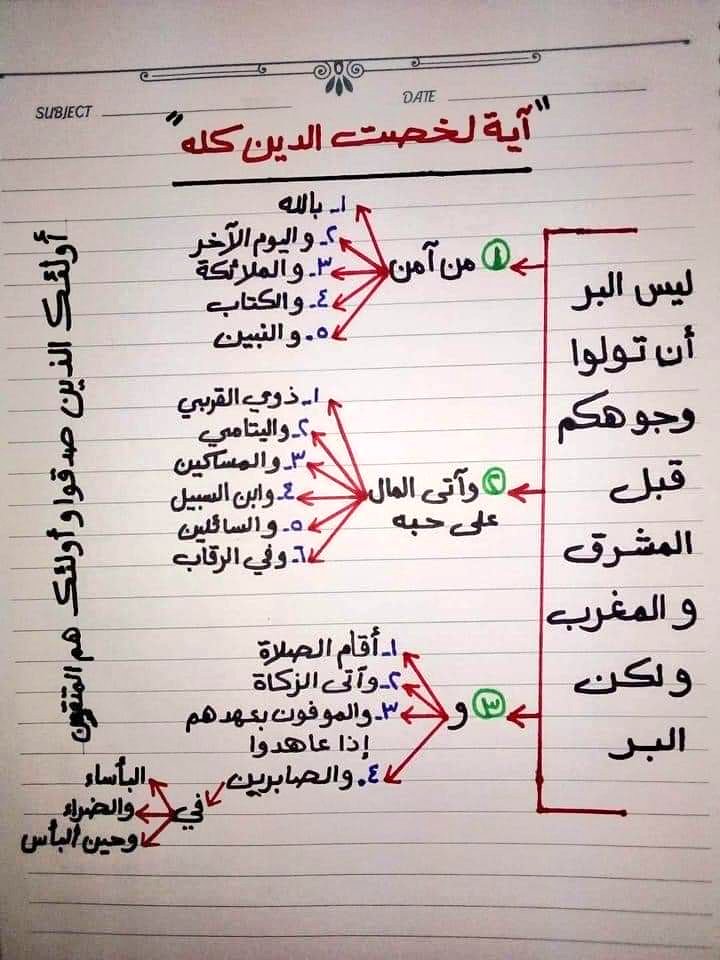 SUBJECT
DATE
"آية لخصت الدين كله"
ليس البر
أن تولوا
وجوهكم
قبل
المشرق
والمغرب
ولكن
البر
١ من آمن
١- بالله
٢- واليوم الآخر
٣- والملائكة
٤- والكتاب
٥- والنبين
٢ وآتى المال
على حبه
١- ذوي القربي
٢- واليتامي
٣- والمساكين
٤- وابن السبيل
٥- والسائلين
٦- وفي الرقاب
٣ و
١- أقام الصلاة
٢- وآتى الزكاة
٣- والموفون بعهدهم
إذا عاهدوا
٤- والصابرين
في
البأساء
والضراء
وحين ألبأس
أولئك الذين صدقوا وأولئك هم المتقون